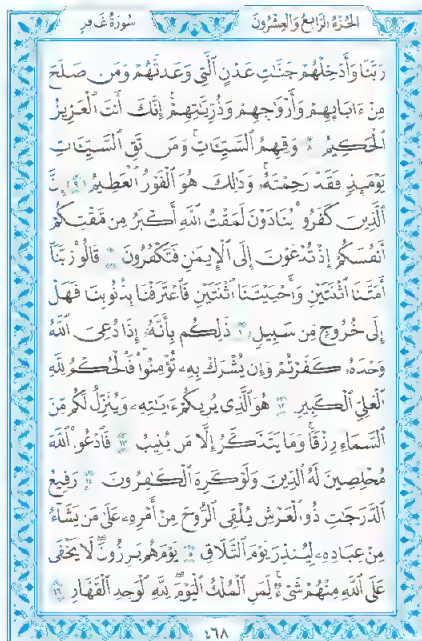 الجزء الرابع والعشرون سورة غافر
رَبَّنَا وَأَدْخِلْهُمْ جَنَّتِ عَدْنٍ ٱلَّتِى وَعَدتَّهُمْ وَمَن صَلَحَ
مِنْ ءَابَآئِهِمْ وَأَزْوَٰجِهِمْ وَذُرِّيَّتِهِمْ إِنَّكَ أَنتَ ٱلْعَزِيزُ
ٱلْحَكِيمُ ٨ وَقِهِمُ ٱلسَّيِّـَٔاتِ وَمَن تَقِ ٱلسَّيِّـَٔاتِ
يَوْمَئِذٍ فَقَدْ رَحِمْتَهُۥ وَذَٰلِكَ هُوَ ٱلْفَوْزُ ٱلْعَظِيمُ ٩ إِنَّ
ٱلَّذِينَ كَفَرُوا۟ يُنَادَوْنَ لَمَقْتُ ٱللَّهِ أَكْبَرُ مِن مَّقْتِكُمْ
أَنفُسَكُمْ إِذْ تُدْعَوْنَ إِلَى ٱلْإِيمَٰنِ فَتَكْفُرُونَ ١٠ قَالُوا۟ رَبَّنَآ
أَمَتَّنَا ٱثْنَتَيْنِ وَأَحْيَيْتَنَا ٱثْنَتَيْنِ فَٱعْتَرَفْنَا بِذُنُوبِنَا فَهَلْ
إِلَىٰ خُرُوجٍ مِّن سَبِيلٍ ١١ ذَٰلِكُم بِأَنَّهُۥٓ إِذَا دُعِىَ ٱللَّهُ
وَحْدَهُۥ كَفَرْتُمْ وَإِن يُشْرَكْ بِهِۦ تُؤْمِنُوا۟ فَٱلْحُكْمُ لِلَّهِ
ٱلْعَلِىِّ ٱلْكَبِيرِ ١٢ هُوَ ٱلَّذِى يُرِيكُمْ ءَايَٰتِهِۦ وَيُنَزِّلُ لَكُم مِّنَ
ٱلسَّمَآءِ رِزْقًا وَمَا يَتَذَكَّرُ إِلَّا مَن يُنِيبُ ١٣ فَٱدْعُوا۟ ٱللَّهَ
مُخْلِصِينَ لَهُ ٱلدِّينَ وَلَوْ كَرِهَ ٱلْكَٰفِرُونَ ١٤ رَفِيعُ
ٱلدَّرَجَٰتِ ذُو ٱلْعَرْشِ يُلْقِى ٱلرُّوحَ مِنْ أَمْرِهِۦ عَلَىٰ مَن يَشَآءُ
مِنْ عِبَادِهِۦ لِيُنذِرَ يَوْمَ ٱلتَّلَاقِ ١٥ يَوْمَ هُم بَٰرِزُونَ لَا يَخْفَىٰ
عَلَى ٱللَّهِ مِنْهُمْ شَىْءٌ لِّمَنِ ٱلْمُلْكُ ٱلْيَوْمَ لِلَّهِ ٱلْوَٰحِدِ ٱلْقَهَّارِ ١٦
٤٦٨